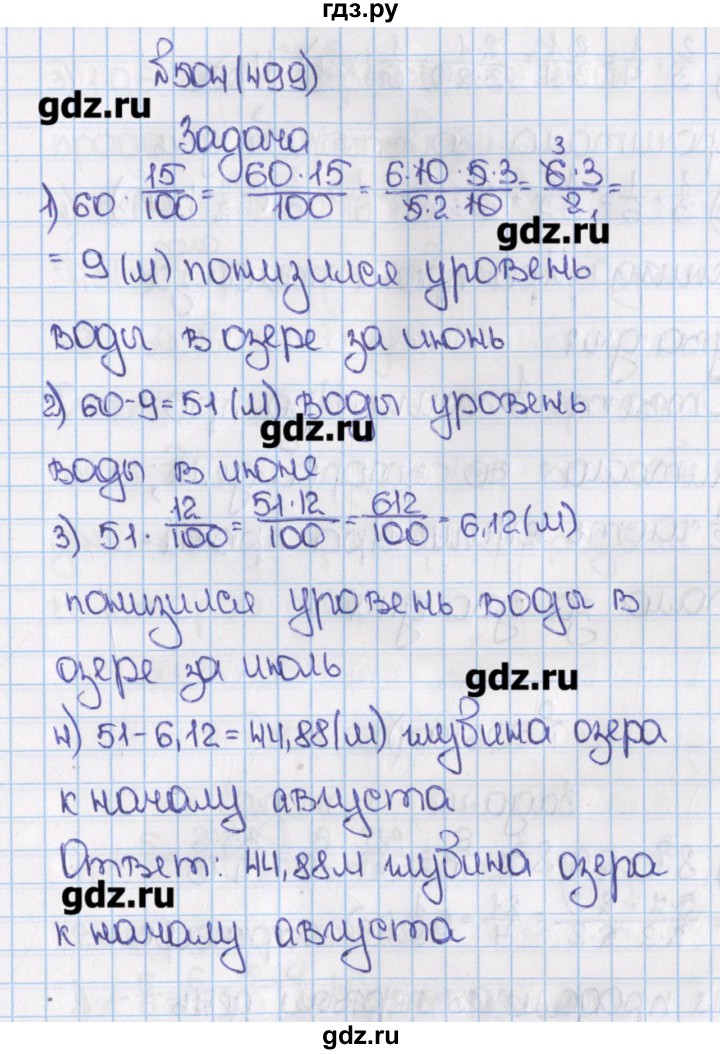 гдз.ру
№504(499)
gdz.ru
Задача
1) 60 15/100 = 60·15/100 = 6·10·5·3/5·2·10 = 6·3/2 = 3 1
gdz.ru
= 9 (м) понизился уровень
воды в озере за июнь
2) 60-9=51 (м) воды уровень
gdz.ru
воды в июне
3) 51· 12/100 = 51·12/100 = 612/100 = 6,12(м)
понизился уровень воды в
озере за июль
gdz.ru
4) 51-6,12=44,88(м) глубина озера
к началу августа
Ответ: 44,88м глубина озера
gdz.ru
к началу августа
gdz.ru